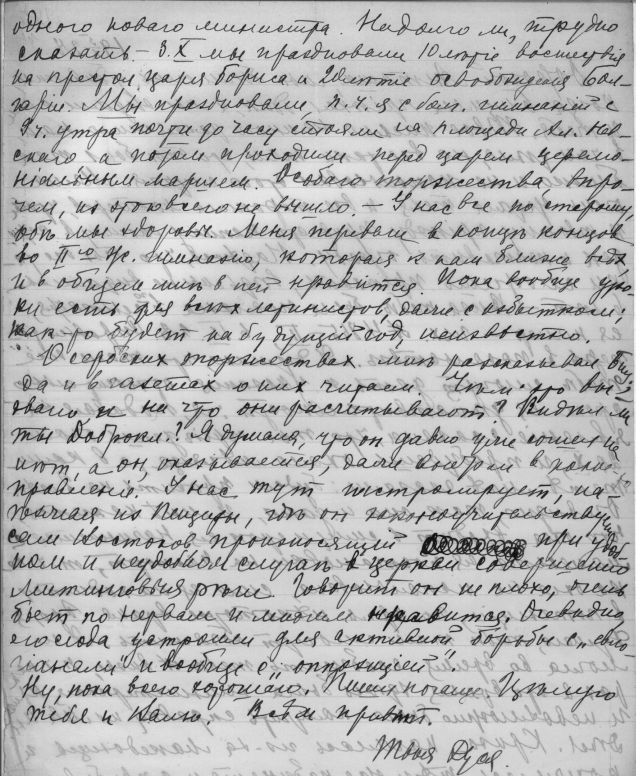 одного новаго министра. Надолго ли, трудно
сказать. — 3.X мы праздновали 10лѣтiе восшествiя
на престол царя Бориса и 20лѣтiе освобожденiя Бол-
гарiи. Мы праздновали, п.ч. я с болг. гимназiей с
9 ч. утра почти до часу стояли на площади Ал. Нев-
скаго а потом проходили перед царем церемо-
нiальным маршем. Особаго торжества впро-
чем, из этого всего не вышло. — У нас все по старому
обѣ мы здоровы. Меня перевели в концѣ концов
во II-ю ж. гимназiю, которая к нам ближе всѣх
и в общем мнѣ в ней нравится. Пока вообще уро-
ки есть для всѣх латинистов, даже с избытком;
как-то будет на будущiй год, неизвѣстно.
О сербских торжествах мнѣ рассказывал
да и в газетах о них читаем. Чѣм это вы-
звано и на что они расчитывают? Видѣл ли
ты Доброкл.? Я думала, что он давно уже сошел на
нѣт, а он, оказывается, даже выбран в
правленiе. У нас тут гастролирует, на-
из Пещеры, гдѣ он законоучительствует
сам Востоков произносящiй при удоб-
ном и неудобном случаѣ в церкви совершенно
митинговыя рѣчи. Говорит он не плохо, очень
бьет по нервам и многим нравится. Очевидно,
его сюда устроили для активной борьбы с „евло-
гiанами" и вообще с „оппозицiей".
Ну, пока всего хорошаго. Пиши почаще. Цѣлую
тебя и Калю. Всѣм привѣт.
Твоя Дуся.